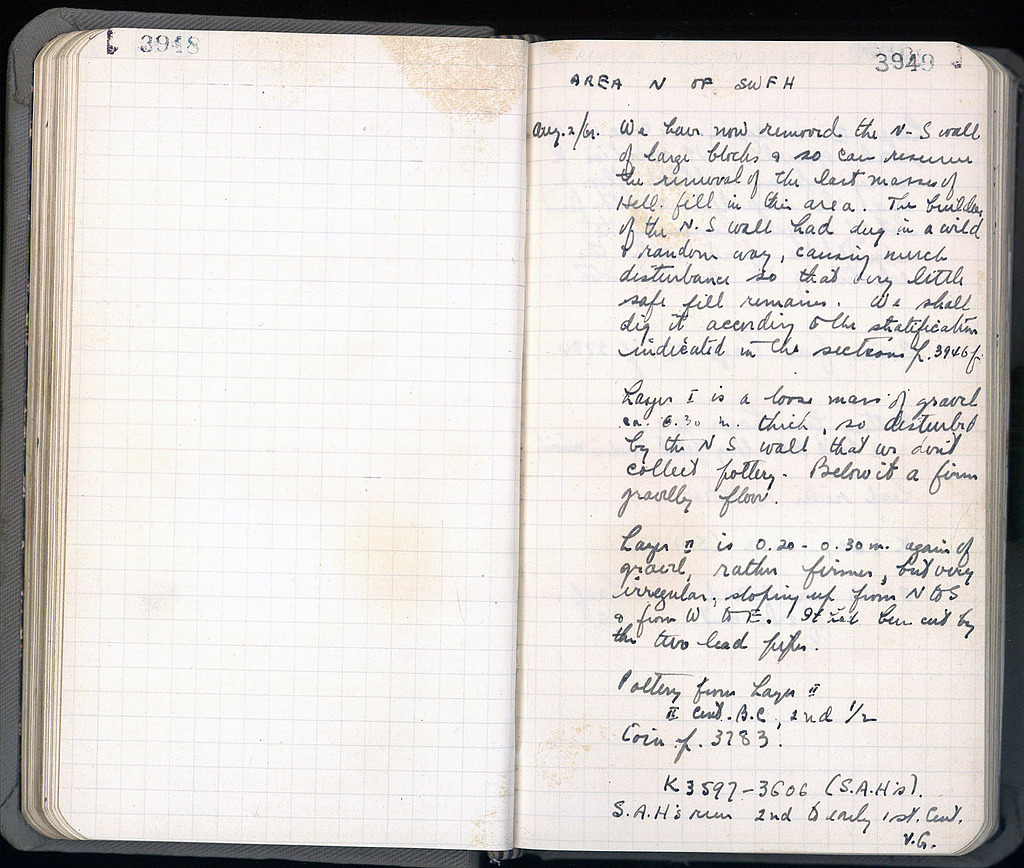 3948
3949
AREA N OF SWFH
Aug. 2/61. We have now removed the N-S wall
of large blocks & so can resume
the removal of the last masses of
Hell. fill in this area. The builders
of the N.S wall had dug in a wild
& random way, causing much
disturbance so that very little
safe fill remains. We shall
dig it according to the stratification
indicated in the sections p. 3946 f.
Layer I is a loose mass of gravel
ca. 0.30 m. thick, so disturbed
by the N S wall that we don't
collect pottery. Below it a firm
gravelly floor.
Layer II is 0.20 - 0.30 m. again of
gravel, rather firmer, but very
irregular, sloping up from N to S
& from W to E. It has been cut by
the two lead pipes.
Pottery from Layer II
II Cent. B.C, 2nd 1/2
Coin p. 3783.
K 3597-3606 (S.A.H's).
S.A.H's run 2nd to early 1st. Cent.
V.G.